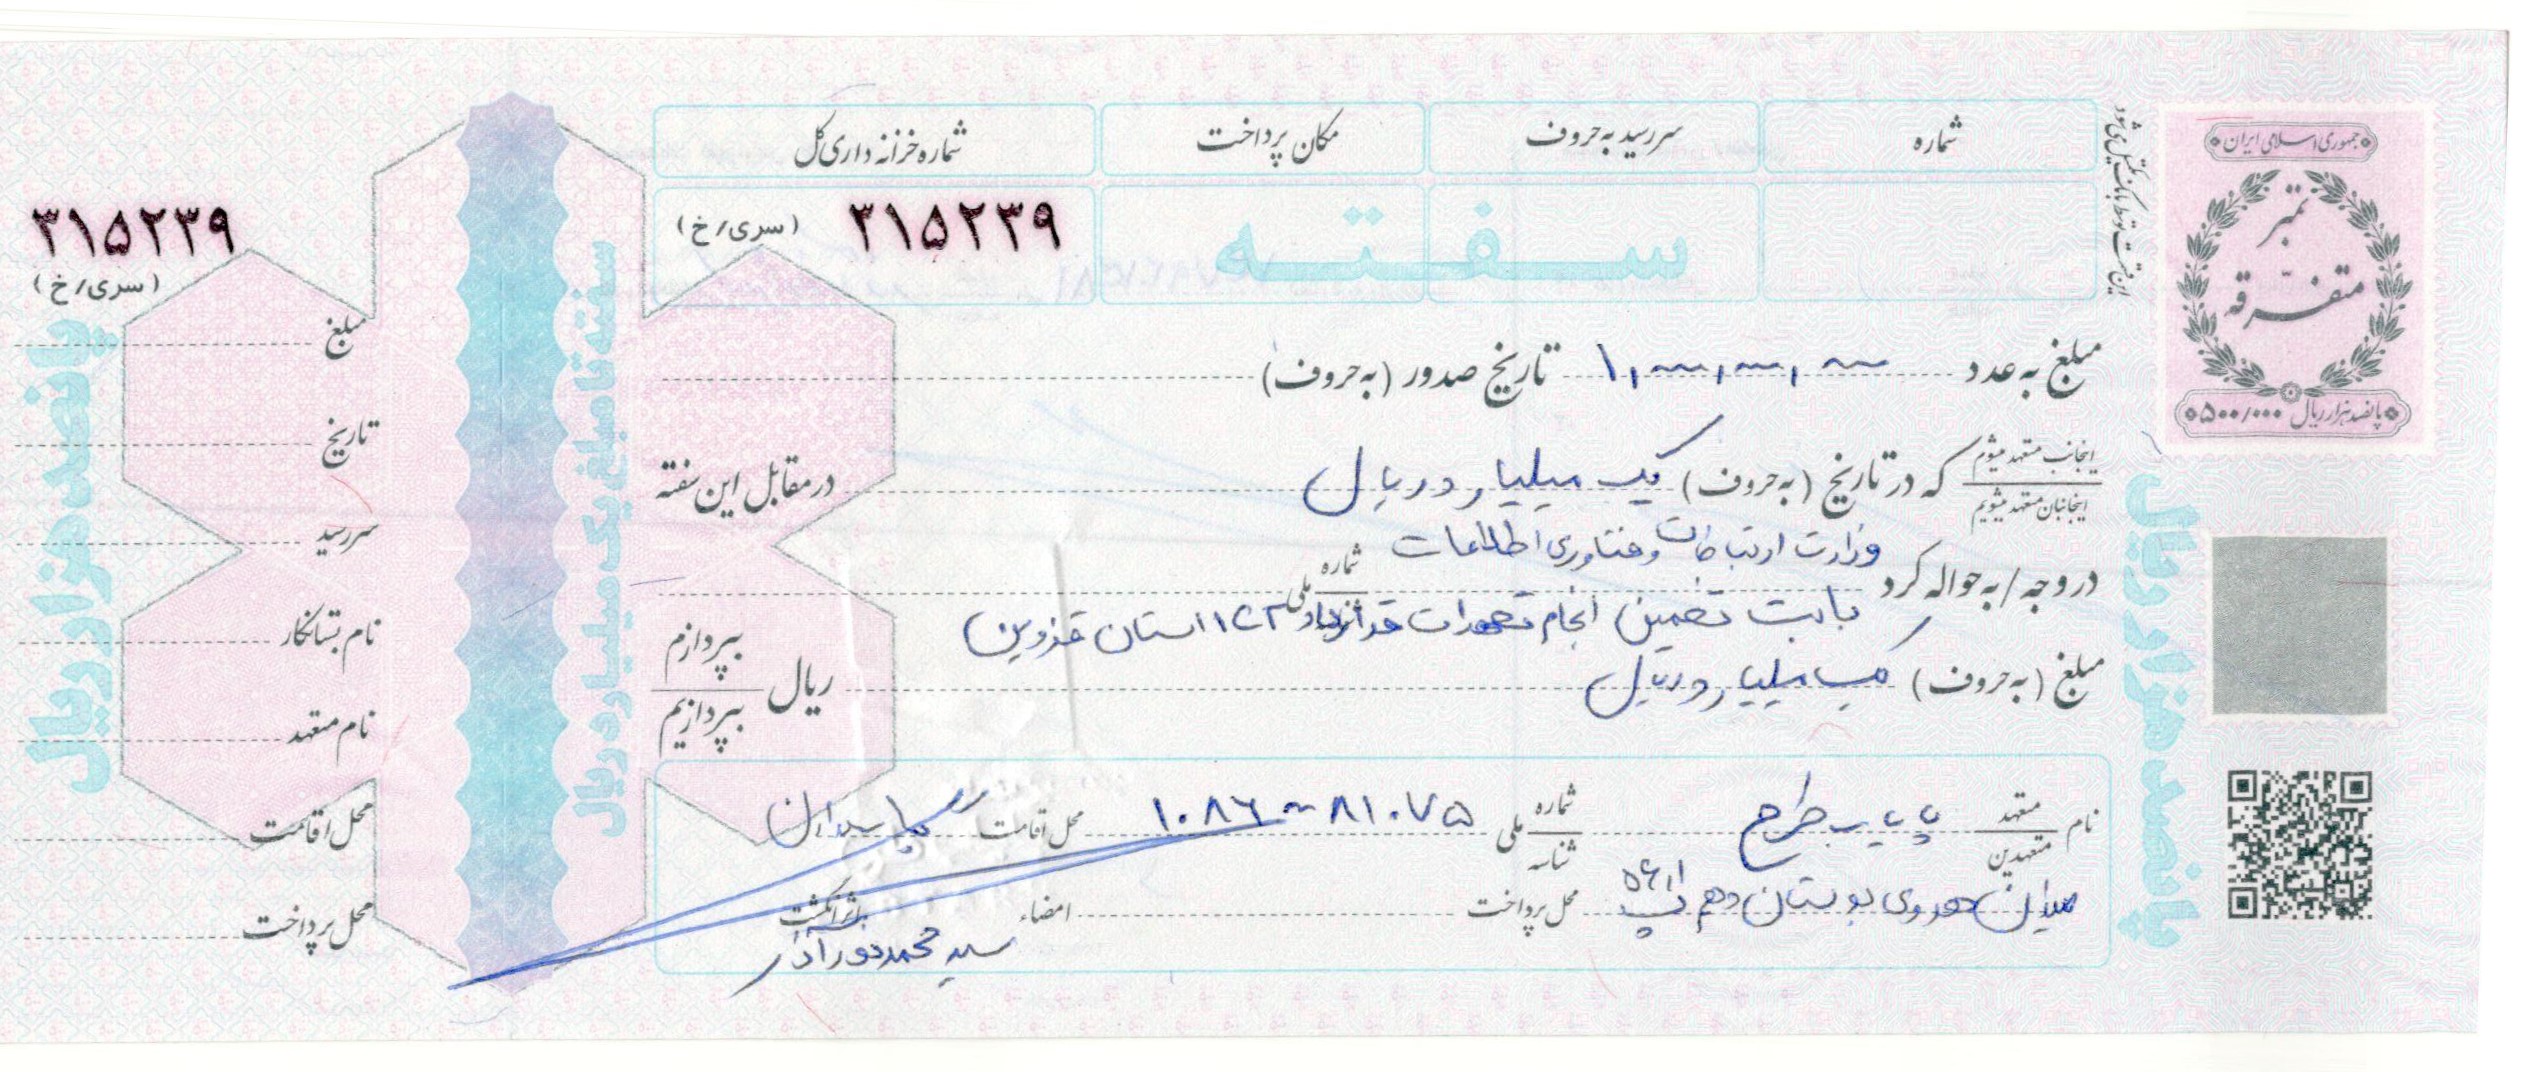 جمهوری اسلامی ایران
تمبر
متفرقه
پانصد هزار ریال ۵۰۰/۰۰۰
این قسمت توسط بانک تکمیل می شود
شماره
سررسید به حروف
مکان پرداخت
شماره خزانه داری کل
سفته
۳۱۵۲۳۹ (سری/خ)
مبلغ به عدد ۱,۰۰۰,۰۰۰,۰۰۰ تاریخ صدور (به حروف)
اینجانب متعهد میشوم
اینجانبان متعهد میشویم
که در تاریخ (به حروف) یک میلیارد ریال در مقابل این سفته
وزارت ارتباطات و فناوری اطلاعات
در وجه / به حواله کرد شماره ملی
بابت تضمین انجام تعهدات قرارداد ۱۲۳ استان قزوین
مبلغ (به حروف) یک میلیارد ریال ریال
بپردازم
بپردازیم
نام متعهد متعهدین طرح شماره ملی شناسه ۱۰۸۶۰۰۸۱۰۷۵ محل اقامت پاسداران
میدان هروی بوستان دهم پ محل پرداخت امضاء یا اثر انگشت
سید محمد
پانصد هزار ریال
سفته تا مبلغ یک میلیارد ریال
۳۱۵۲۳۹
(سری/خ)
مبلغ
تاریخ
سررسید
نام بستانکار
نام متعهد
محل اقامت
محل پرداخت
پانصد هزار ریال